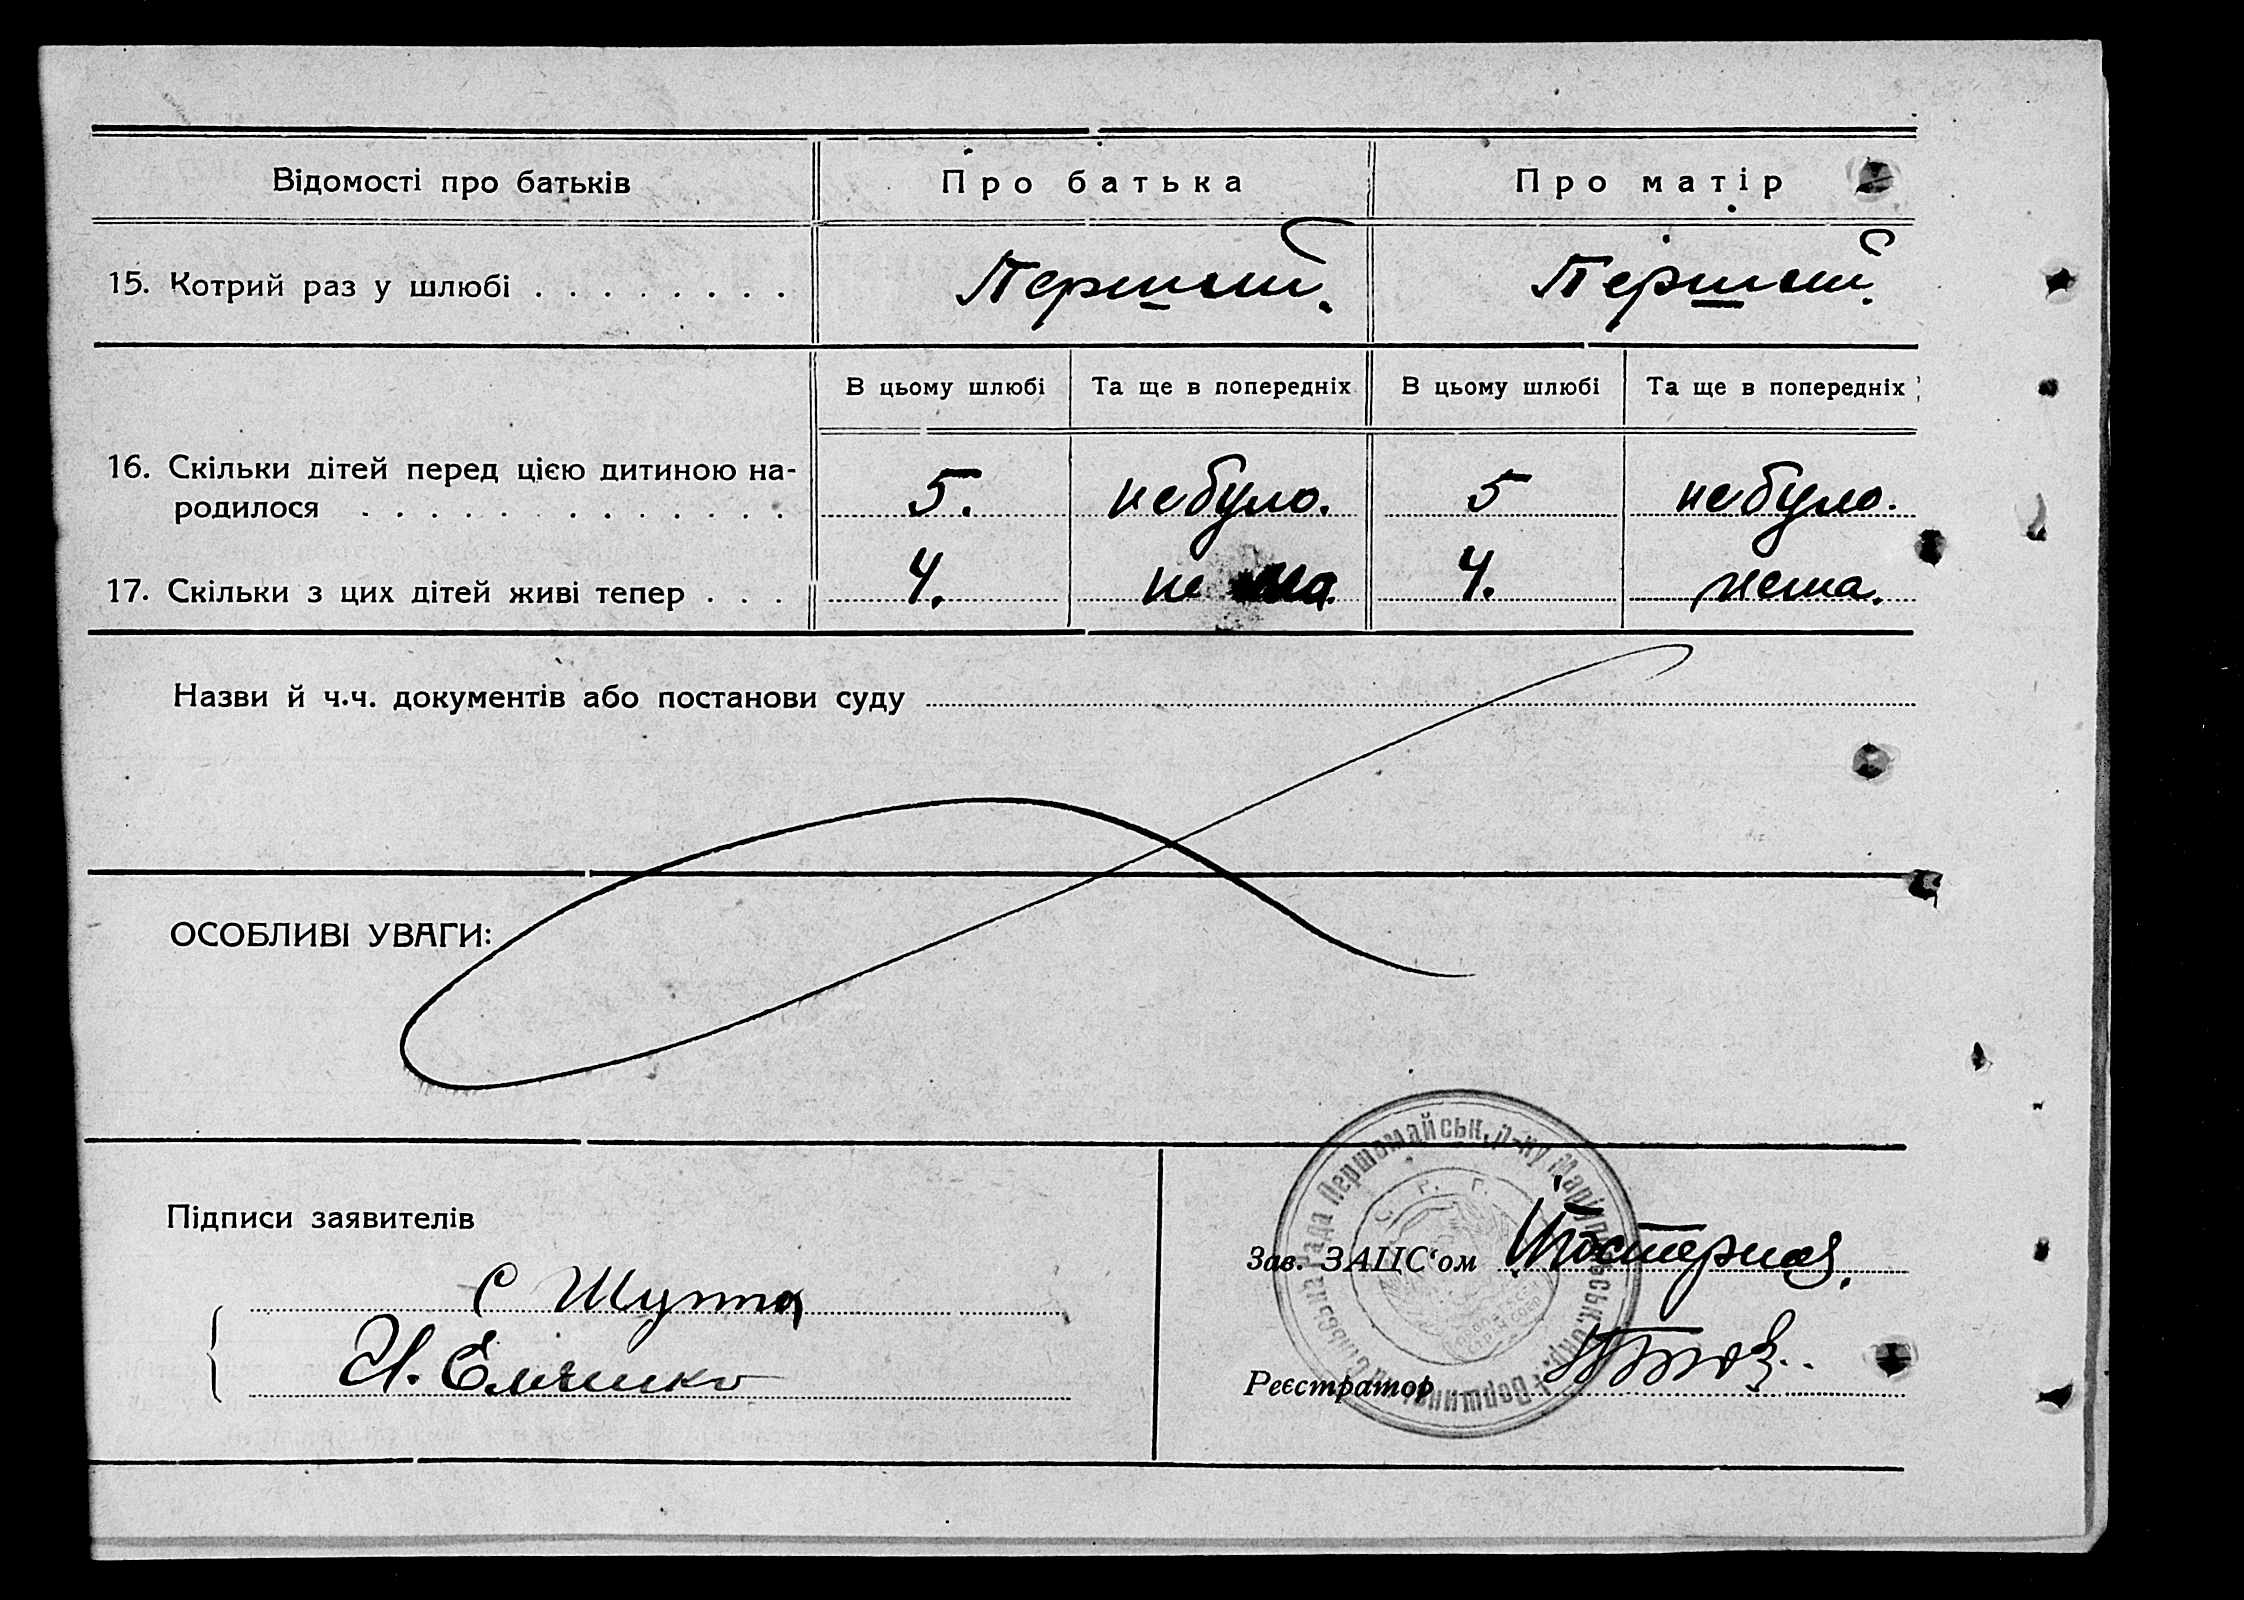 Відомості про батьків Про батька Про матір
15. Котрий раз у шлюбі . . . . . . . . Перший. Перший.
В цьому шлюбі Та ще в попередніх В цьому шлюбі Та ще в попередніх
16. Скільки дітей перед цією дитиною на-
родилося . . . . . . . . . . . . . 5. небуло. 5 небуло.
17. Скільки з цих дітей живі тепер . . . 4. не ма. 4. нема.
Назви й ч.ч. документів або постанови суду
ОСОБЛИВІ УВАГИ:
Підписи заявителів
С Шуппа
Зав. ЗАЦС‘ом
Реєстратор
Сільська Рада Першомайськ. р-ну Маріупольськ. окр.